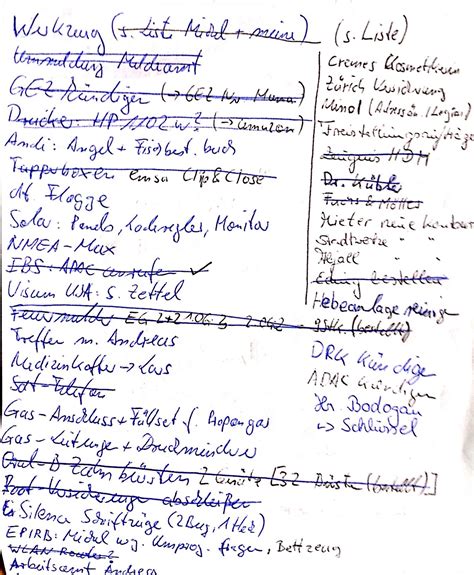 Werkzeug (s. List Midel + meine)
Ummeldung Meldeamt
GEZ kündigen (→ GEZ Nr. Mama)
Drucker: HP 1102 w? (→ amazon)
Andi: Angel + Fischbest. buch
Tupperboxen emsa Clip & Close
dt. Flagge
Solar: Panels, Laderegler, Monitor
NMEA-Mux
EBS: ADAC anrufen ✓
Visum USA: s. Zettel
Feuermelder
Treffen m. Andreas
Medizinkoffer → Lars
Sat-Telefon
Gas-Anschluss + Füllset f. Propangas
Gas-Leitunge + Druckminderer
Oral-B Zahnbürsten 2 [32 (bestellt)]
Boot Versicherung abschließen
Silence Schriftzüge (2 Bug, 1 Heck)
EPIRB: Midel wg. Umprog. fragen, Bettzeug
WLAN Router?
Arbeitsamt Andrea
(s. Liste)
Cremes
Zürich Versicherung
Freistellungsaufträge
Zeugnis HDM
Dr. Kübler
Mieter neue Kontonr
Stadtwerke " "
" "
bestellen
Hebeanlage reinige
(bestellt)
DRK kündigen
ADAC kündigen
Hr. Bodogan
↳ Schlüssel